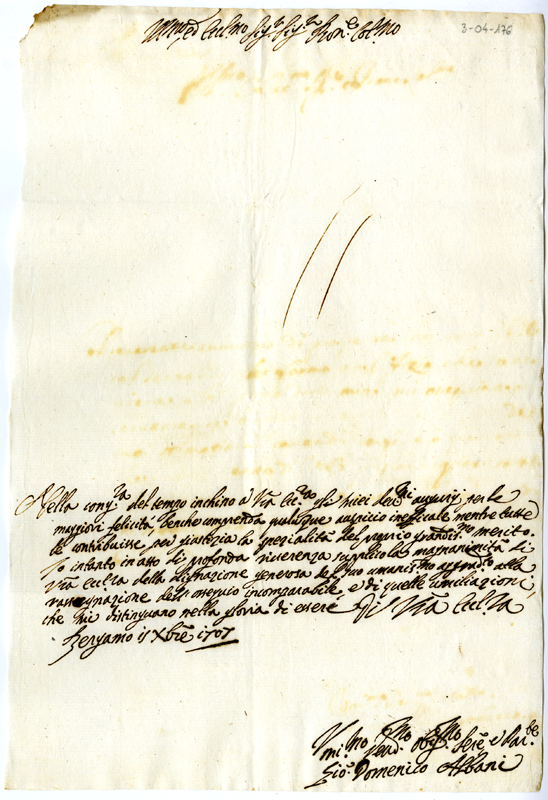 Ill.mo ed Ecc.mo Sig.r Sig.r P.ron Col.mo
3-04-176
Nella cong.ra del tempo inchino à V.ra Ecc.za gli miei augurij per le
maggiori felicità, benche comprenda qualunque auspicio inefficace mentre tutte
le contribuisse per giustizia la spezialità del proprio grandis.mo merito.
Io intanto in atto di profonda riverenza suplico la magnanimità di
V.ra Ecc.za della generosa del suo umanis.mo alla
rassegnazione dell'ossequio incomparabile, e di quelle umiliazioni,
che mi distinguano nella gloria di essere Di V.ra Ecc.za
Bergamo 15 Xbre 1707
Um.mo Dev.mo Obg.mo Ser.e
Gio: Domenico Albani